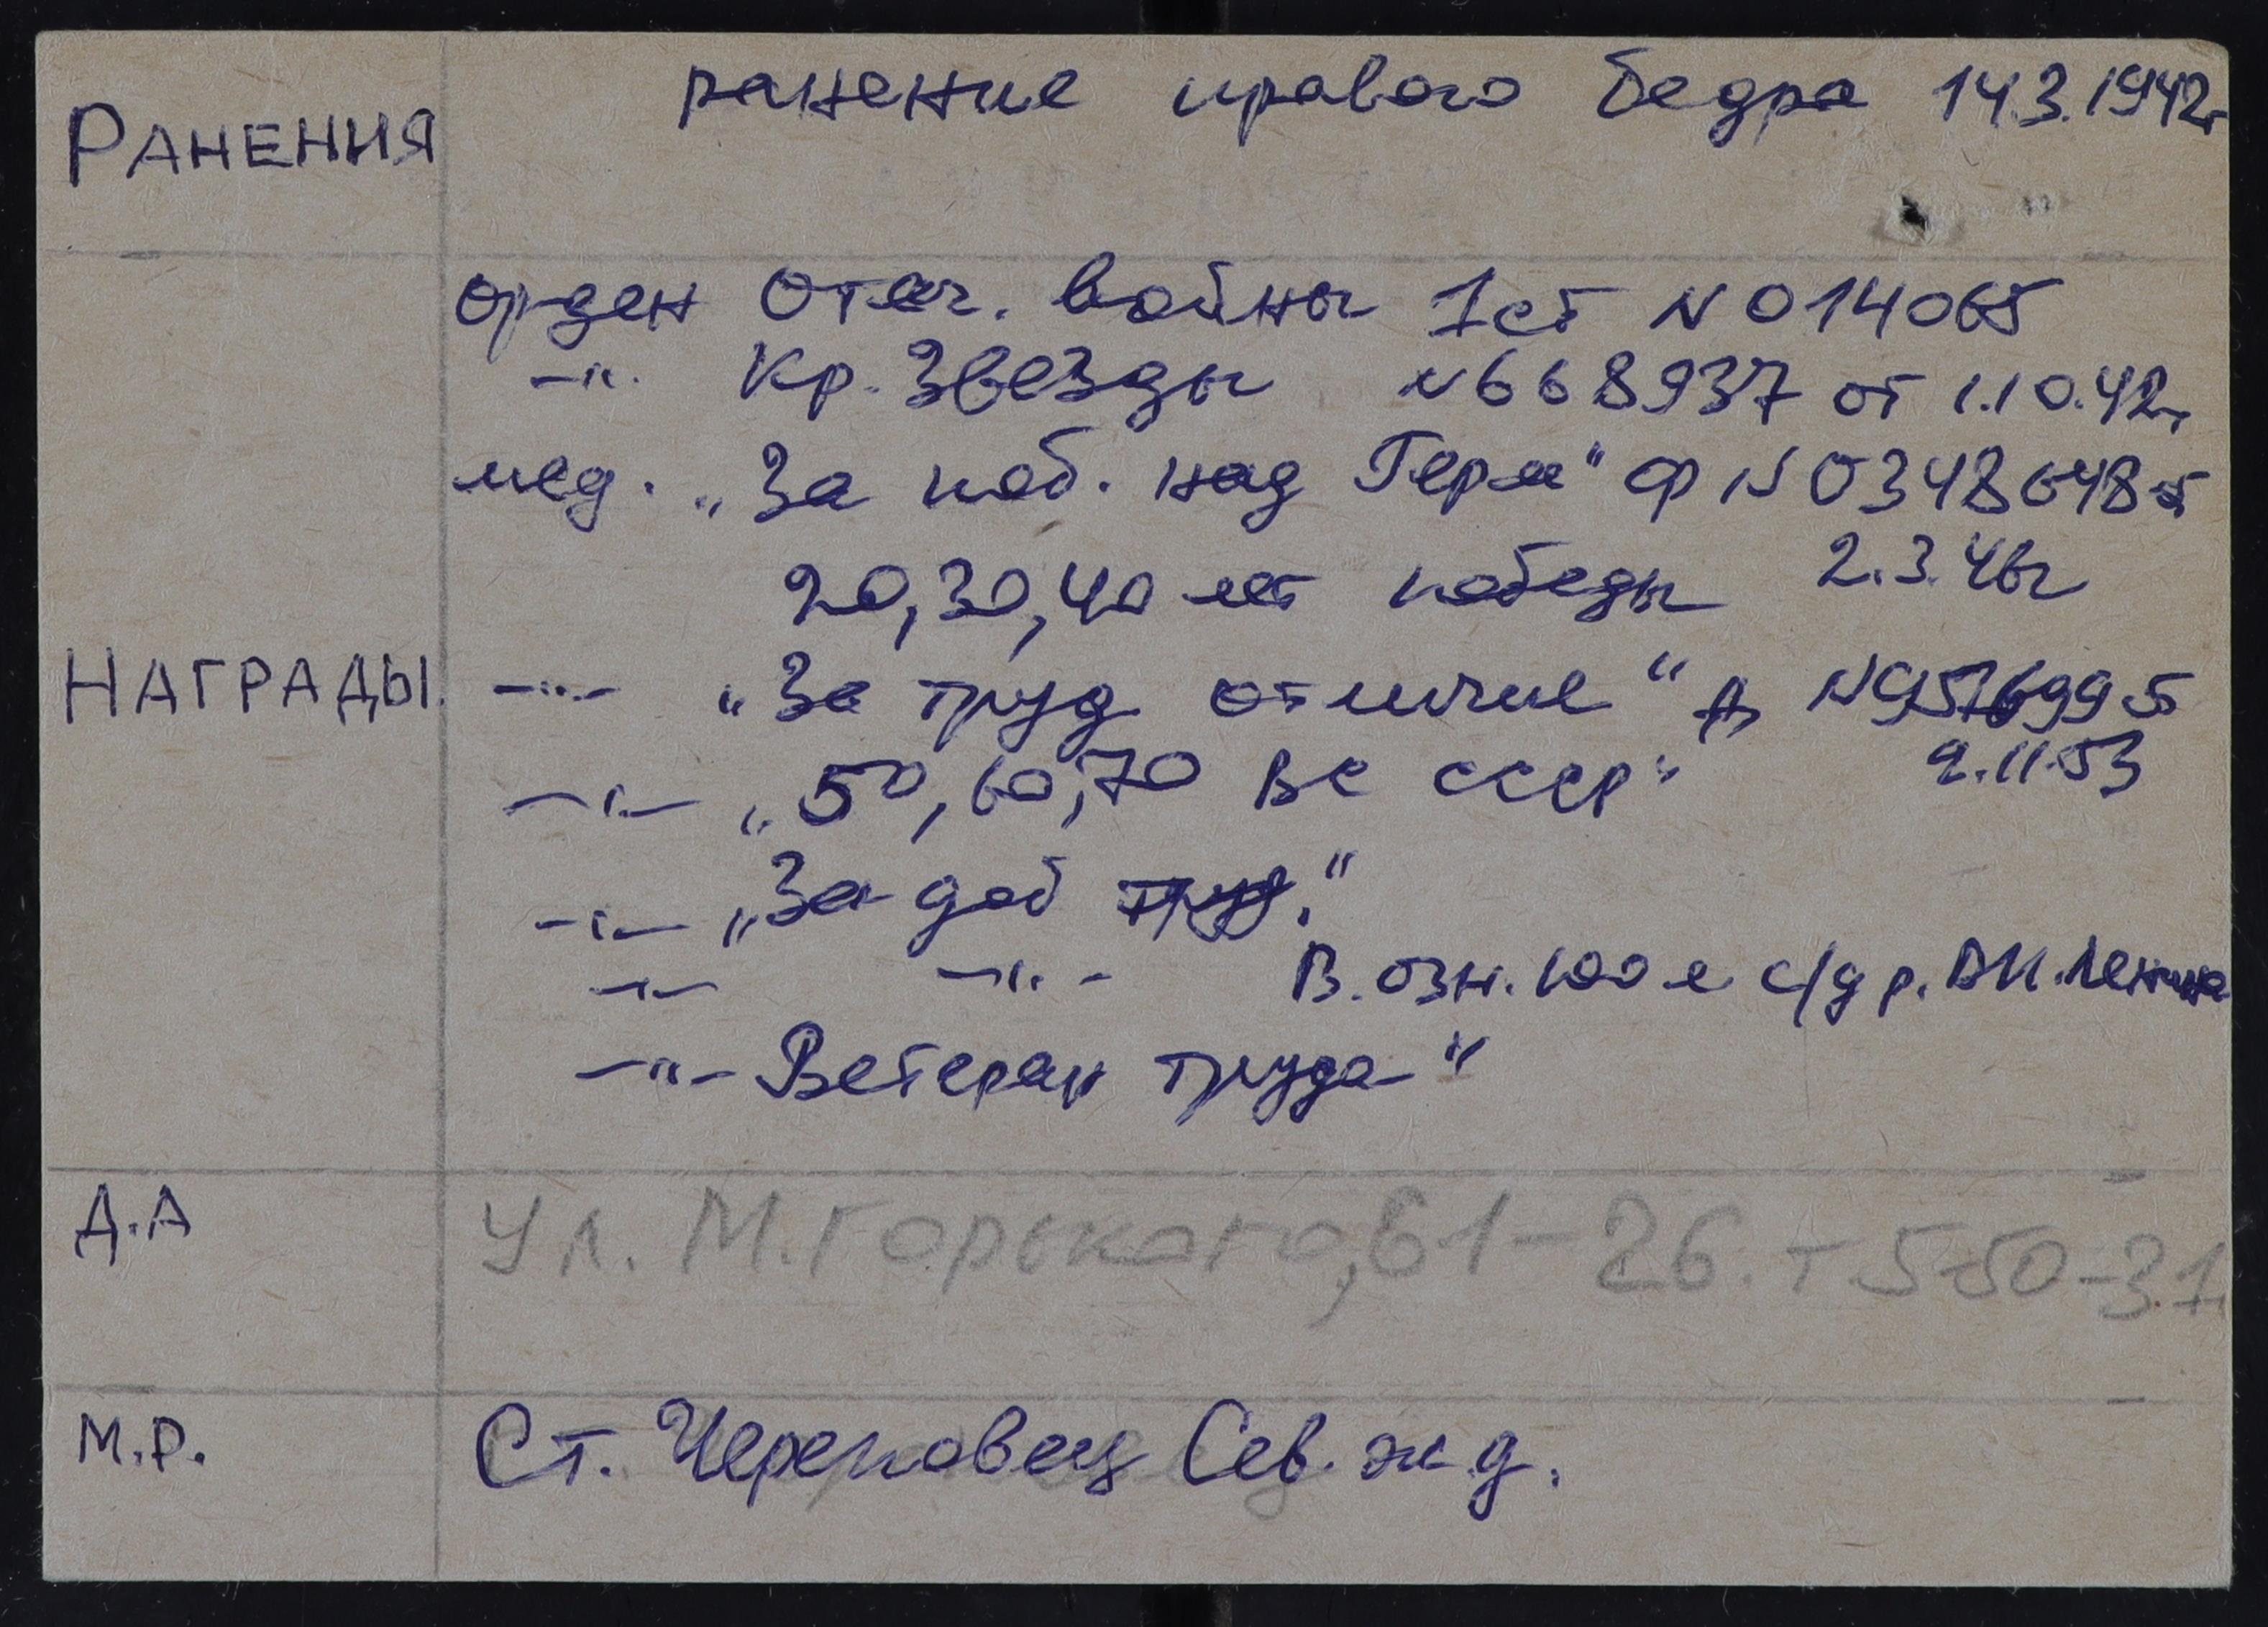 РАНЕНИЯ
ранение правого бедра 14.3.1942г
НАГРАДЫ.
орден Отеч. войны 1ст N 014065
-"- Кр. Звезды N 668937 от 1.10.42г
мед. „За поб. над Герм" Ф N 0348648 от
20,30,40 лет победы 2.3.46г
-"- „За труд отличие" А N
2.11.53
-"- „50,60,70 ВС СССР"
-"- „За доб труд."
-"- -"- В. озн. 100 е с/д р. В.И. Ленина
-"- Ветеран труда"
Д.А
Ул. М. Горького, 61-26. т 5-50-31
М.Р.
Ст. Череповец Сев. ж.д.